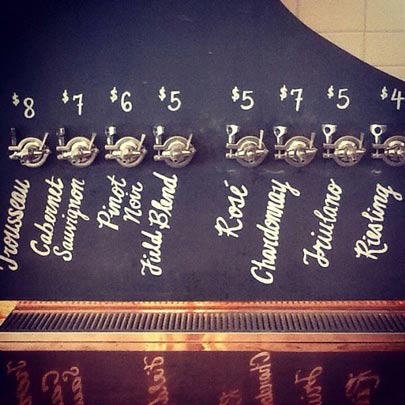 $8 $7 $6 $5 $5 $7 $5 $4
Trousseau
Cabernet
Sauvignon
Pinot
Noir
Field Blend
Rosé
Chardonnay
Friulano
Riesling